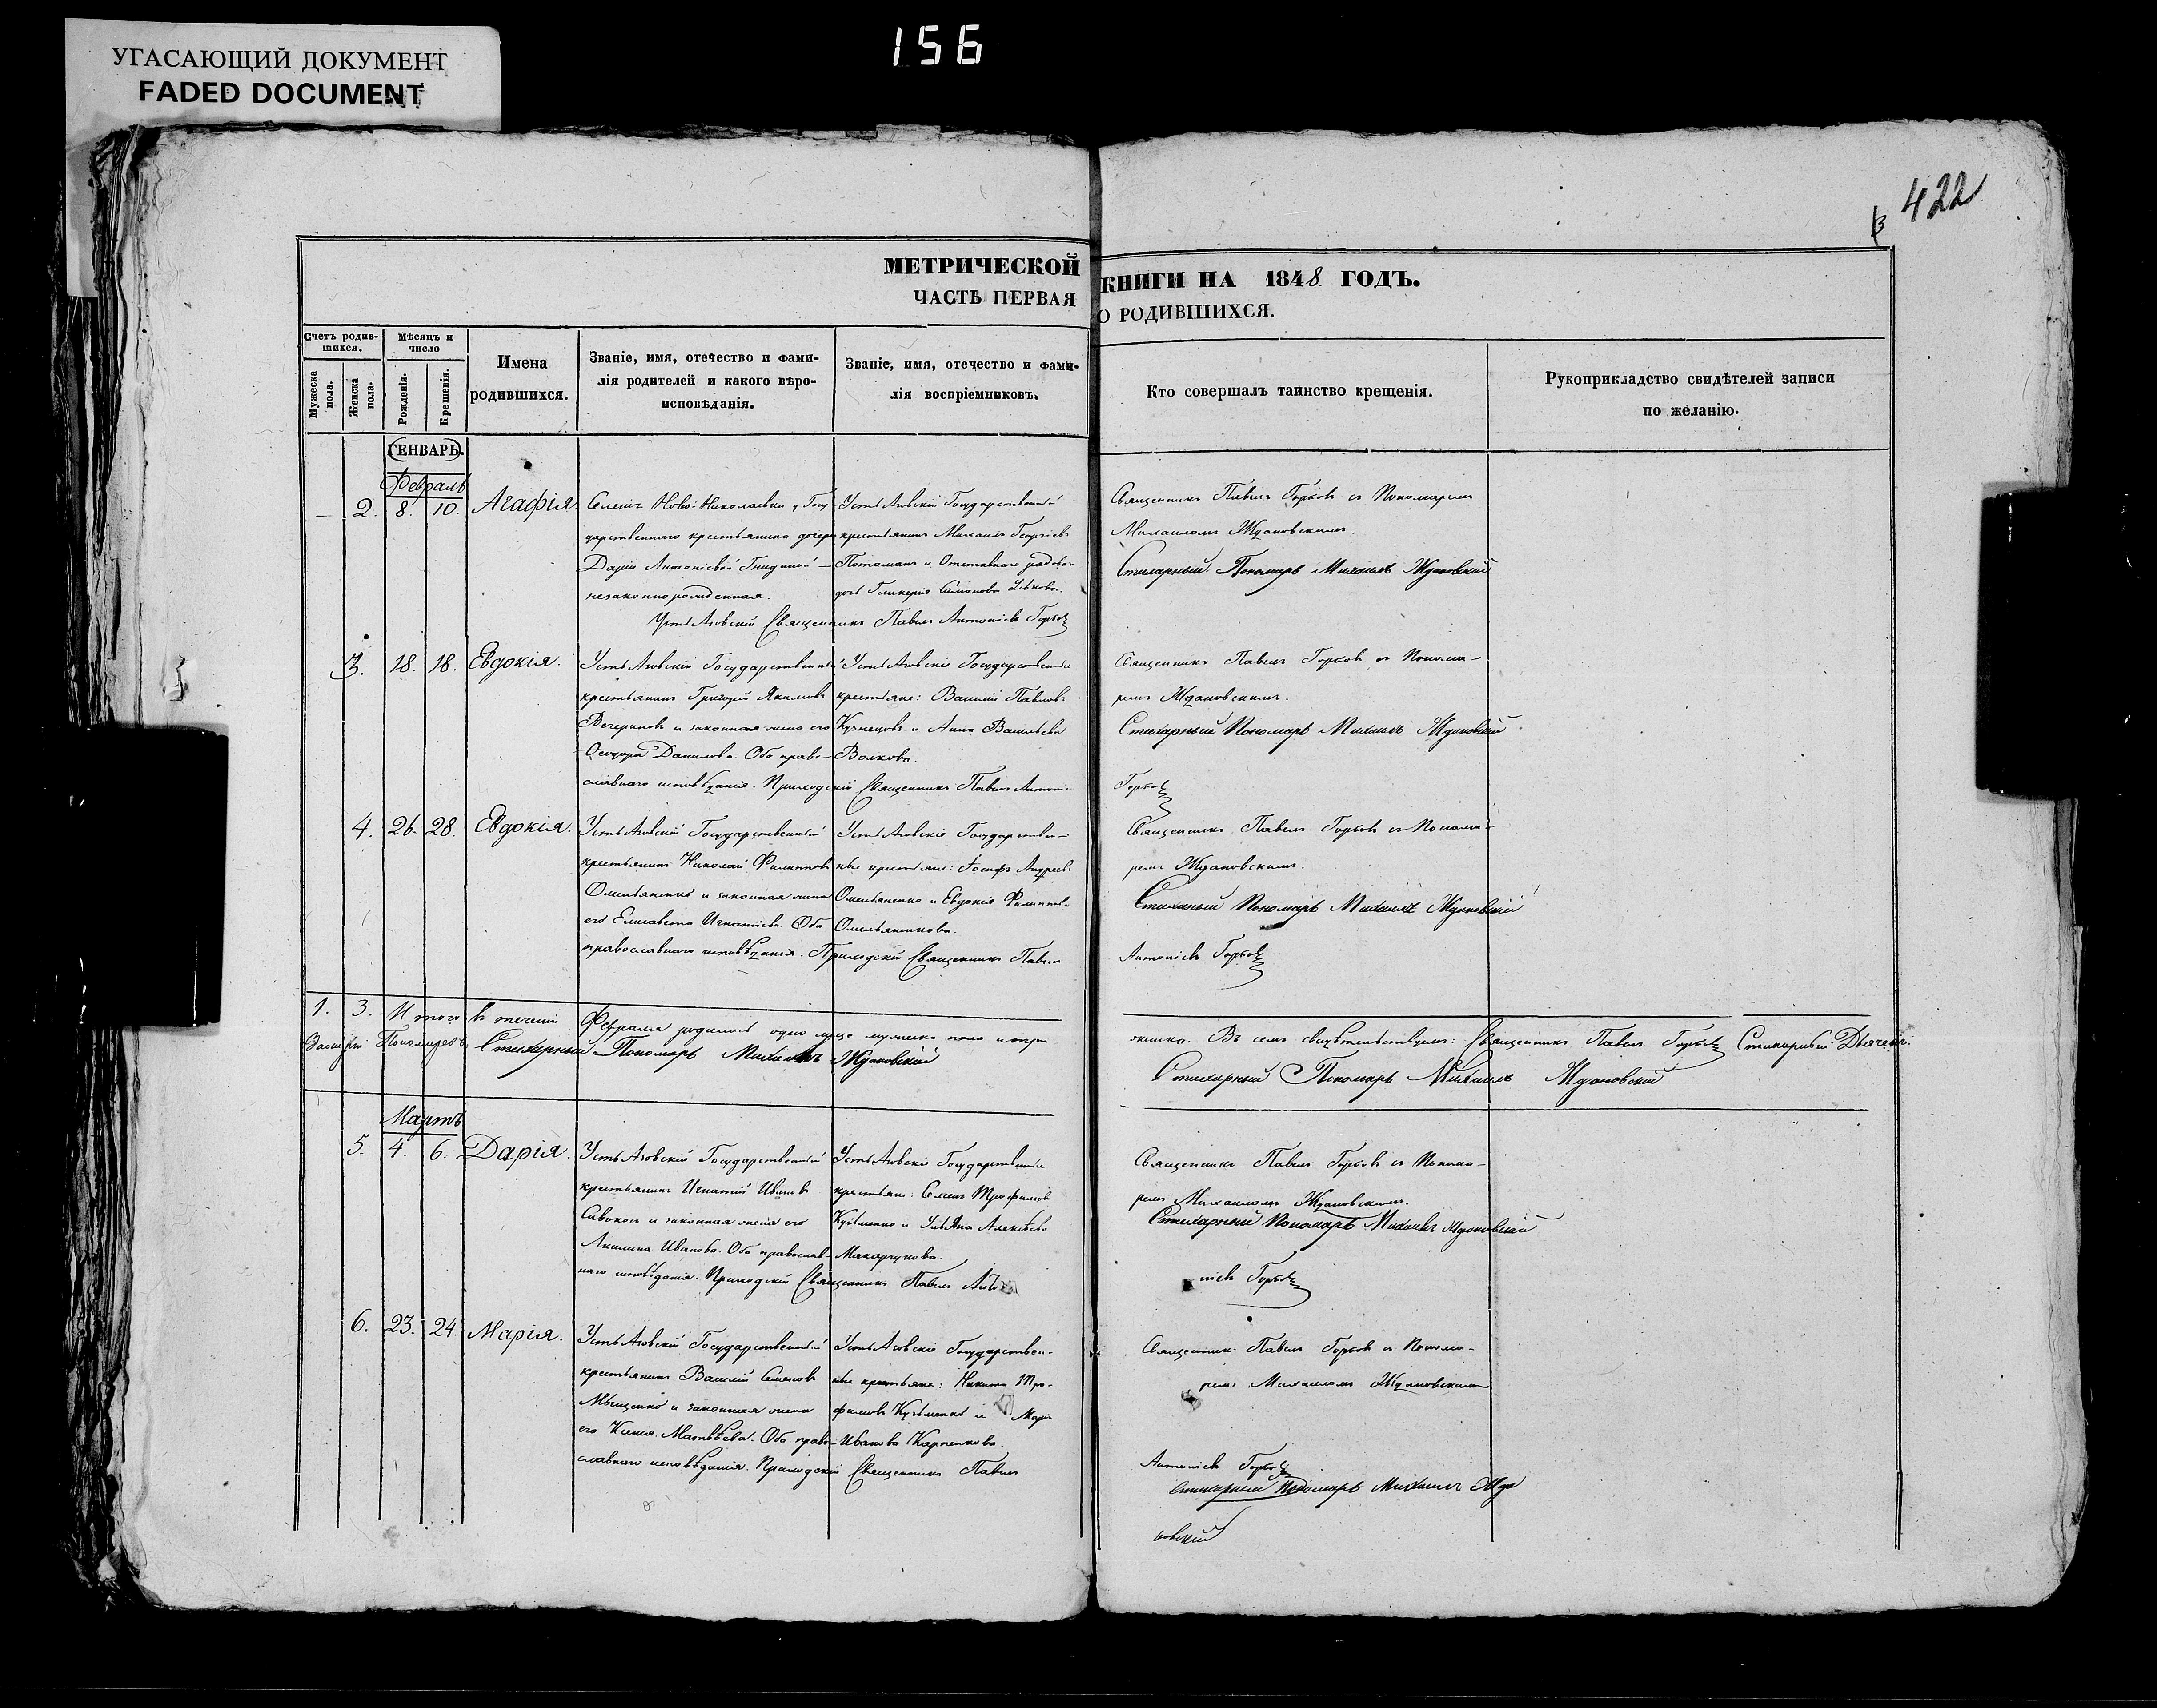 156
УГАСАЮЩИЙ ДОКУМЕНТ
FADED DOCUMENT
422
МЕТРИЧЕСКОЙ КНИГИ НА 1848 ГОДЪ.
ЧАСТЬ ПЕРВАЯ О РОДИВШИХСЯ.
Счетъ родив-
шихся.
Мужеска пола.
Женска пола.
Мѣсяцъ и
число
Рожденія.
Крещенія.
Имена
родившихся.
Званіе, имя, отечество и фами-
лія родителей и какого вѣро-
исповѣданія.
Званіе, имя, отечество и фами-
лія воспріемниковъ.
Кто совершалъ таинство крещенія.
Рукоприкладство свидѣтелей записи
по желанію.
ГЕНВАРЬ.
Февраль
2. 8. 10. Агафія
Селенія Ново-Николаевки, Госу-
дарственнаго крестьянина дочери
Даріи Антоніевой
незаконнорожденная.
Усть Азовскій Государственный
крестьянинъ Михаилъ Георгіевъ
и Отставнаго рядова-
дочь Гликерія Симонова
Усть Азовскій Священникъ Павелъ Антоніевъ Горбов
Священникъ Павелъ Горбовъ съ Пономаремъ
Михаиломъ Ждановскимъ.
Стихарный Пономарь Михаилъ Ждановскій
3. 18. 18. Евдокія.
Усть Азовскій Государственный
крестьянинъ Григорій Якимовъ
и законная жена его
Данилова. Оба право-
славнаго исповѣданія. Приходскій Священникъ Павелъ Антоні-
Усть Азовскіе Государственные
крестьяне: Василій Павловъ
Кузнецовъ и Анна Васильева
Волкова.
Священникъ Павелъ Горбовъ съ Понома-
ремъ Ждановскимъ.
Стихарный Пономарь Михаилъ Ждановскій
Горбов
4. 26. 28. Евдокія.
Усть Азовскій Государственный
крестьянинъ Николай Филиповъ
Омельяненко и законная жена
его Елисавета Игнатіева. Оба
православнаго исповѣданія. Приходскій Священникъ Павелъ
Усть Азовскіе Государствен-
ные крестьяне: Іосифъ Андреевъ
Омельяненко и Евдокія Филипова
Омельяненкова.
Священникъ Павелъ Горбовъ съ Понома-
ремъ Ждановскимъ.
Стихарный Пономарь Михаилъ Ждановскій
Антоніевъ Горбов
1. 3. Итого въ теченіи Февраля родилось одно мужеска пола и три
женска. Въ семъ свидѣтельствуемъ: Священникъ Павелъ Горбов Стихарный
Стихарный Пономарь Михаилъ Ждановскій
Стихарный Пономарь Михаилъ Ждановскій
Мартъ
5. 4. 6. Дарія.
Усть Азовскій Государственный
крестьянинъ Игнатій Ивановъ
и законная жена его
Акилина Иванова. Оба православ-
наго исповѣданія. Приходскій Священникъ Павелъ Анто
Усть Азовскіе Государственные
крестьяне: Семенъ Трофимовъ
Кузьменко и Ульяна Алексѣева
Макарчукова.
Священникъ Павелъ Горбовъ съ Понома-
ремъ Михаиломъ Ждановскимъ.
Стихарный Пономарь Михаилъ Ждановскій
ніевъ Горбов
6. 23. 24. Марія.
Усть Азовскій Государственный
крестьянинъ Василій Семеновъ
и законная жена
его Ксенія Матвѣева. Оба право-
славнаго исповѣданія. Приходскій Священникъ Павелъ
Усть Азовскіе Государствен-
ные крестьяне: Никита Тро-
фимовъ Кузьменко и Марія
Иванова Карпенкова.
Священникъ Павелъ Горбовъ съ Понома-
ремъ Михаиломъ Ждановскимъ
Антоніевъ Горбов
Стихарный Пономарь Михаилъ Жда
новскій